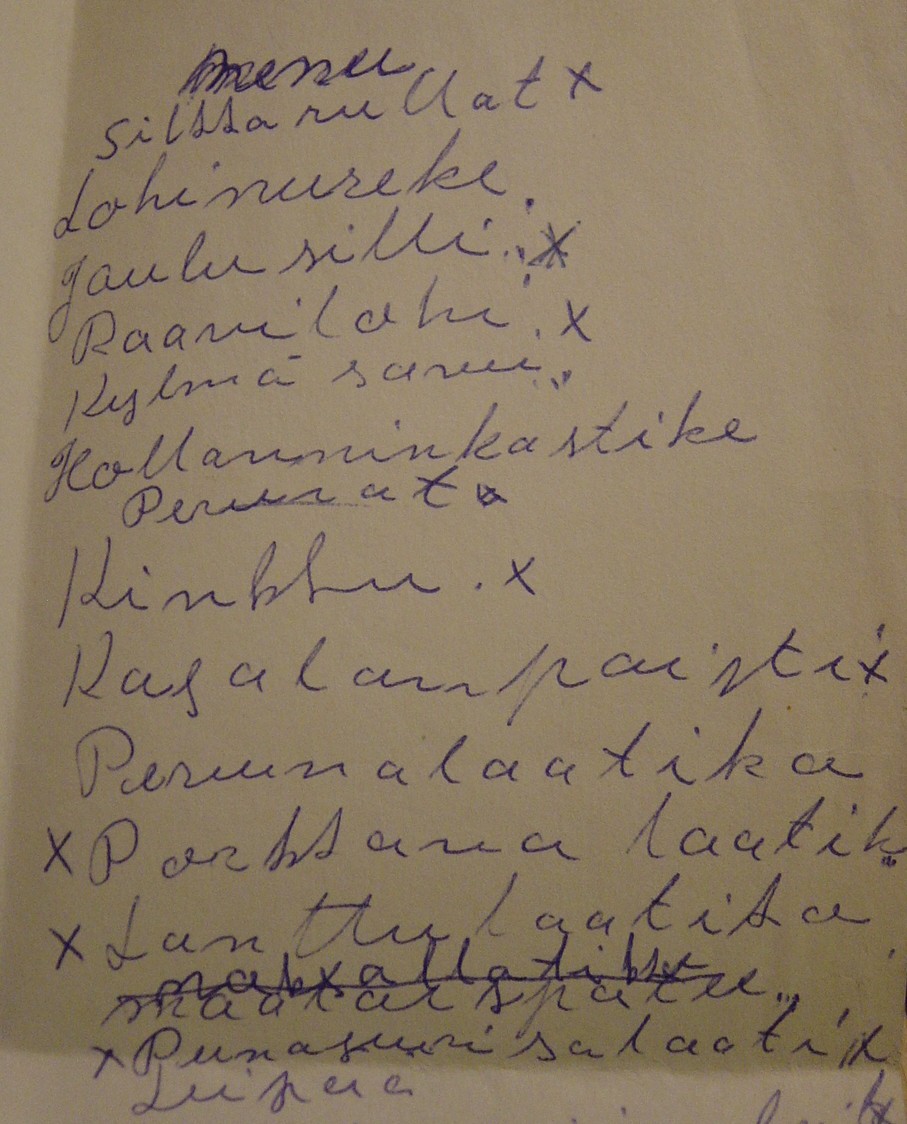 menu
Silkkarullat x
Lohimureke.
Joulusilli. x
Raavilohi. x
Kylmä savu..
Hollanninkastike
Perunat x
Kinkku . x
Kasalanpaisti x
Perunalaatika
x Porkkana laatik
x Lanttulaatika
x Punajuurisalaatti x
Leipää